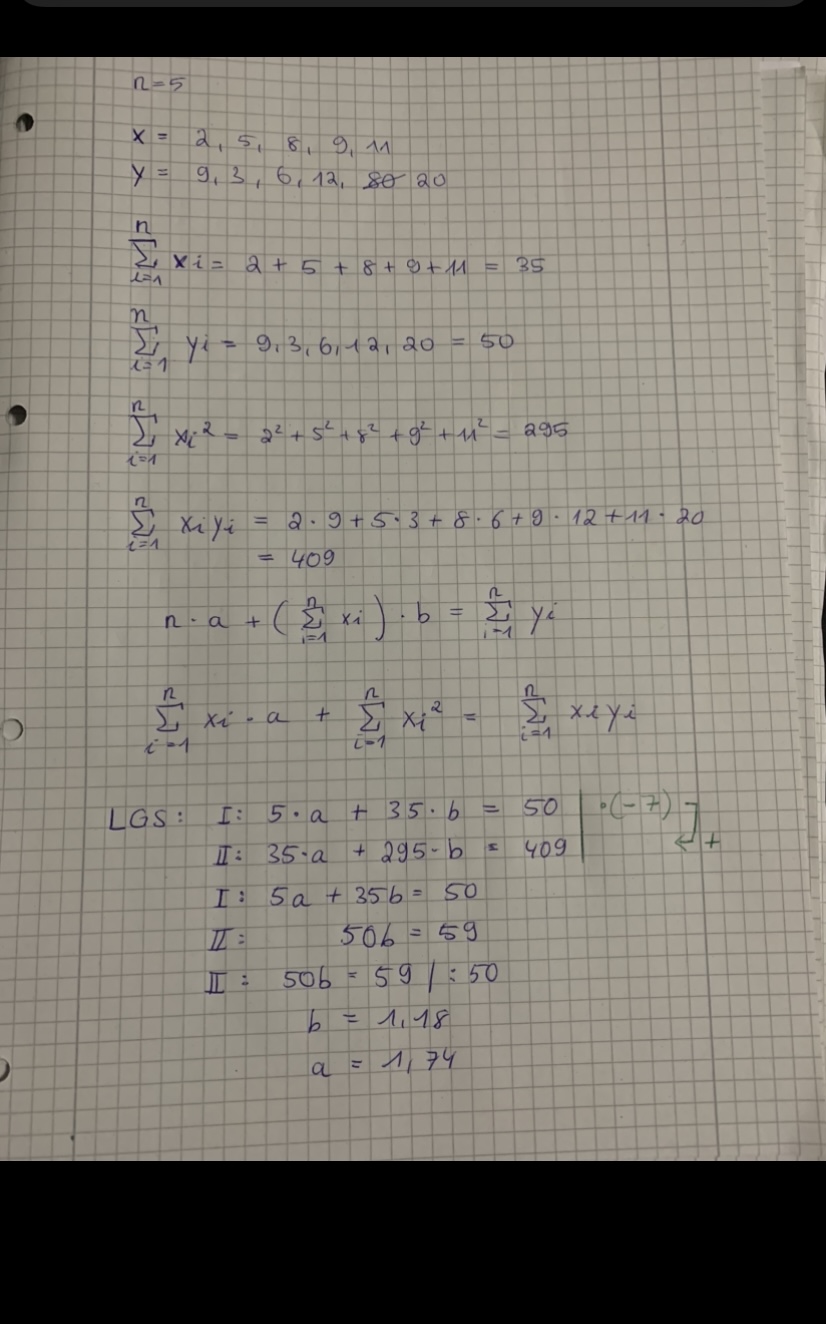 n=5
x = 2, 5, 8, 9, 11
y = 9, 3, 6, 12, 80 20
n
Σ xi = 2 + 5 + 8 + 9 + 11 = 35
i=1
n
Σ yi = 9, 3, 6, 12, 20 = 50
i=1
n
Σ xi² = 2² + 5² + 8² + 9² + 11² = 295
i=1
n
Σ xiyi = 2 · 9 + 5 · 3 + 8 · 6 + 9 · 12 + 11 · 20
i=1
= 409
n · a + ( Σ xi ) · b = Σ yi
n n
i=1 i=1
n n n
Σ xi · a + Σ xi² = Σ xiyi
i=1 i=1 i=1
LGS: I: 5 · a + 35 · b = 50 | ·(-7)
II: 35 · a + 295 · b = 409 ↵ +
I: 5a + 35b = 50
II: 50b = 59
II: 50b = 59 | : 50
b = 1,18
a = 1,74